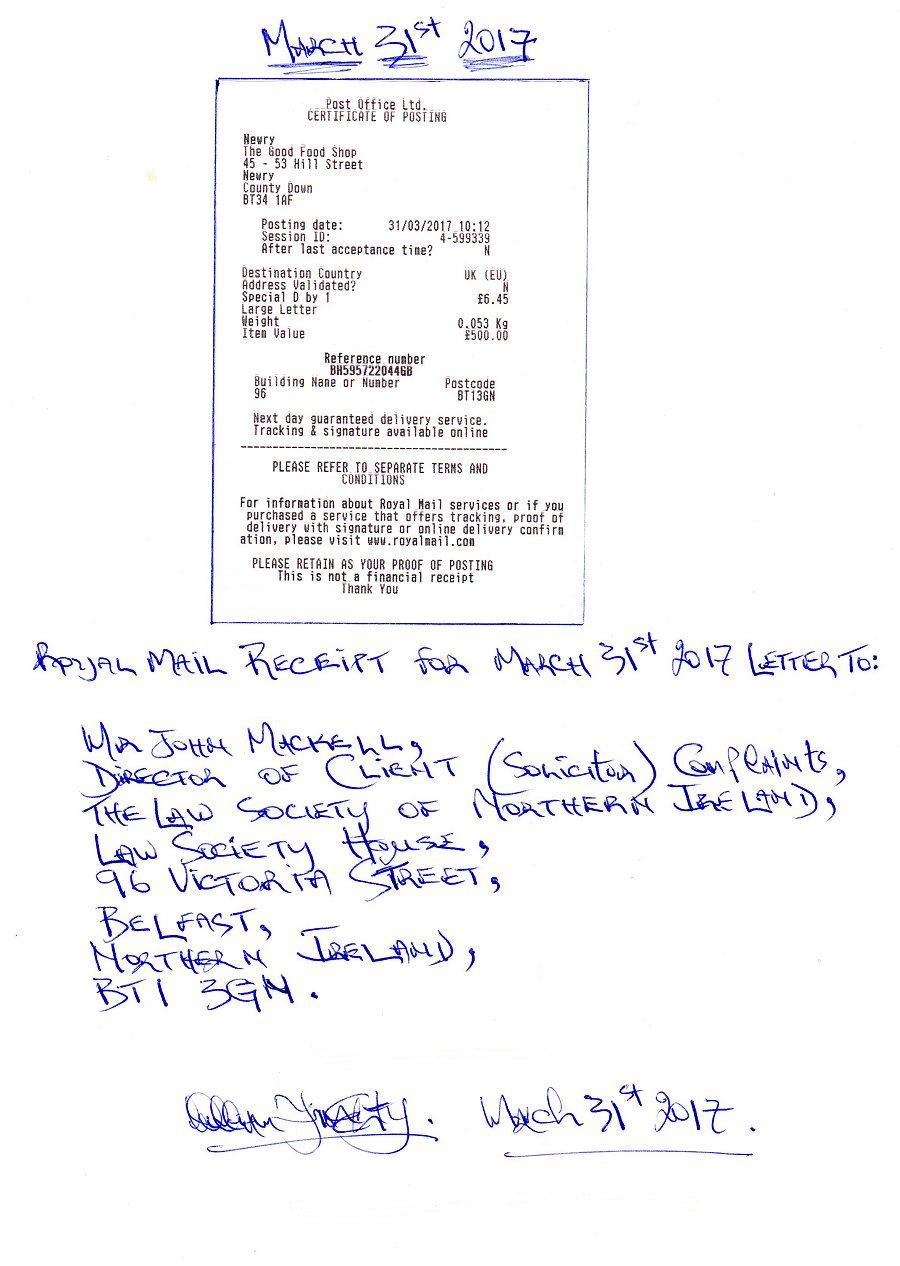 MARCH 31st 2017
Post Office Ltd.
CERTIFICATE OF POSTING
Newry
The Good Food Shop
45 - 53 Hill Street
Newry
County Down
BT34 1AF
Posting date: 31/03/2017 10:12
Session ID: 4-599339
After last acceptance time? N
Destination Country UK (EU)
Address Validated? N
Special D by 1 £6.45
Large Letter
Weight 0.053 Kg
Item Value £500.00
Reference number
BH595722044GB
Building Name or Number Postcode
96 BT13GN
Next day guaranteed delivery service.
Tracking & signature available online
PLEASE REFER TO SEPARATE TERMS AND
CONDITIONS
For information about Royal Mail services or if you
purchased a service that offers tracking, proof of
delivery with signature or online delivery confirm
ation, please visit www.royalmail.com
PLEASE RETAIN AS YOUR PROOF OF POSTING
This is not a financial receipt
Thank You
ROYAL MAIL RECEIPT FOR MARCH 31st 2017 LETTER TO:
MR JOHN MACKELL,
DIRECTOR OF CLIENT (SOLICITOR) COMPLAINTS,
THE LAW SOCIETY OF NORTHERN IRELAND,
LAW SOCIETY HOUSE,
96 VICTORIA STREET,
BELFAST,
NORTHERN IRELAND,
BT1 3GN.
March 31st 2017.